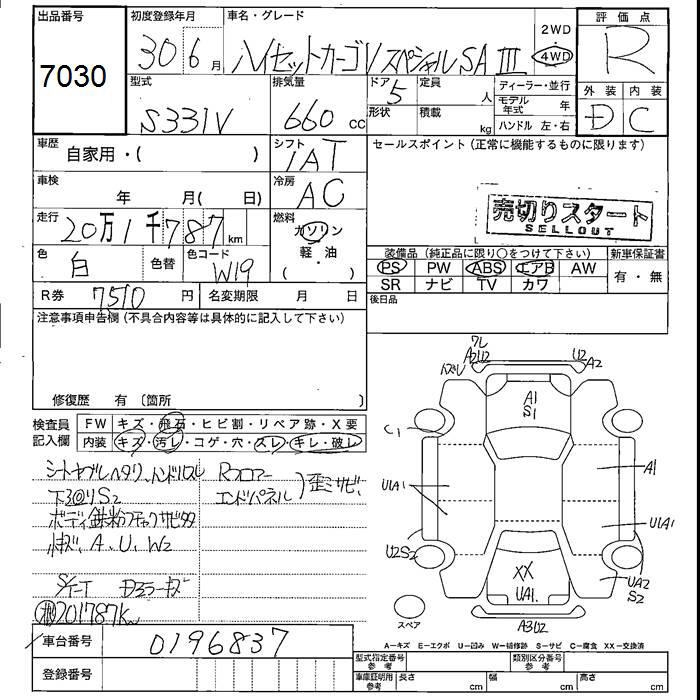 出品番号
7030
初度登録年月
30 6月
車名・グレード
ハイゼットカーゴ スペシャルSAⅢ
2WD
4WD
評価点
R
型式
S331V
排気量
660 cc
ドア
5
定員
人
形状
積載
kg
ディーラー・並行
モデル年式 年
ハンドル 左・右
外装 内装
D C
車歴
自家用・( )
シフト
IAT
セールスポイント(正常に機能するものに限ります)
車検
年 月( 日)
冷房
AC
売切りスタート
SELLOUT
走行
20万1千787km
燃料
ガソリン
軽油
( )
色
白
色替
色コード
W19
装備品(純正品に限り○をつけて下さい)
新車保証書
PS PW ABS エアB AW
有・無
SR ナビ TV カワ
R券 7510 円
名変期限 月 日
後日品
注意事項申告欄(不具合内容等は具体的に記入して下さい)
修復歴 有(箇所 )
検査員記入欄
FW キズ・飛石・ヒビ割・リペア跡・X要
内装 キズ・汚レ・コゲ・穴・スレ・キレ・破レ
Rフロアー
エンドパネル
下3@リS2
小キズ、A、U、W2
201787km
ワレ
A2U2
U2
A2
A1
S1
C1
A1
U1A1
U1A1
U2S2
XX
UA1.
UA2
S2
スペア
A3U2
A-キズ E-エクボ U-凹み W-補修跡 S-サビ C-腐食 XX-交換済
車台番号
0196837
登録番号
型式指定番号
参考
類別区分番号
参考
車庫証明用
参考
長さ cm
幅 cm
高さ cm